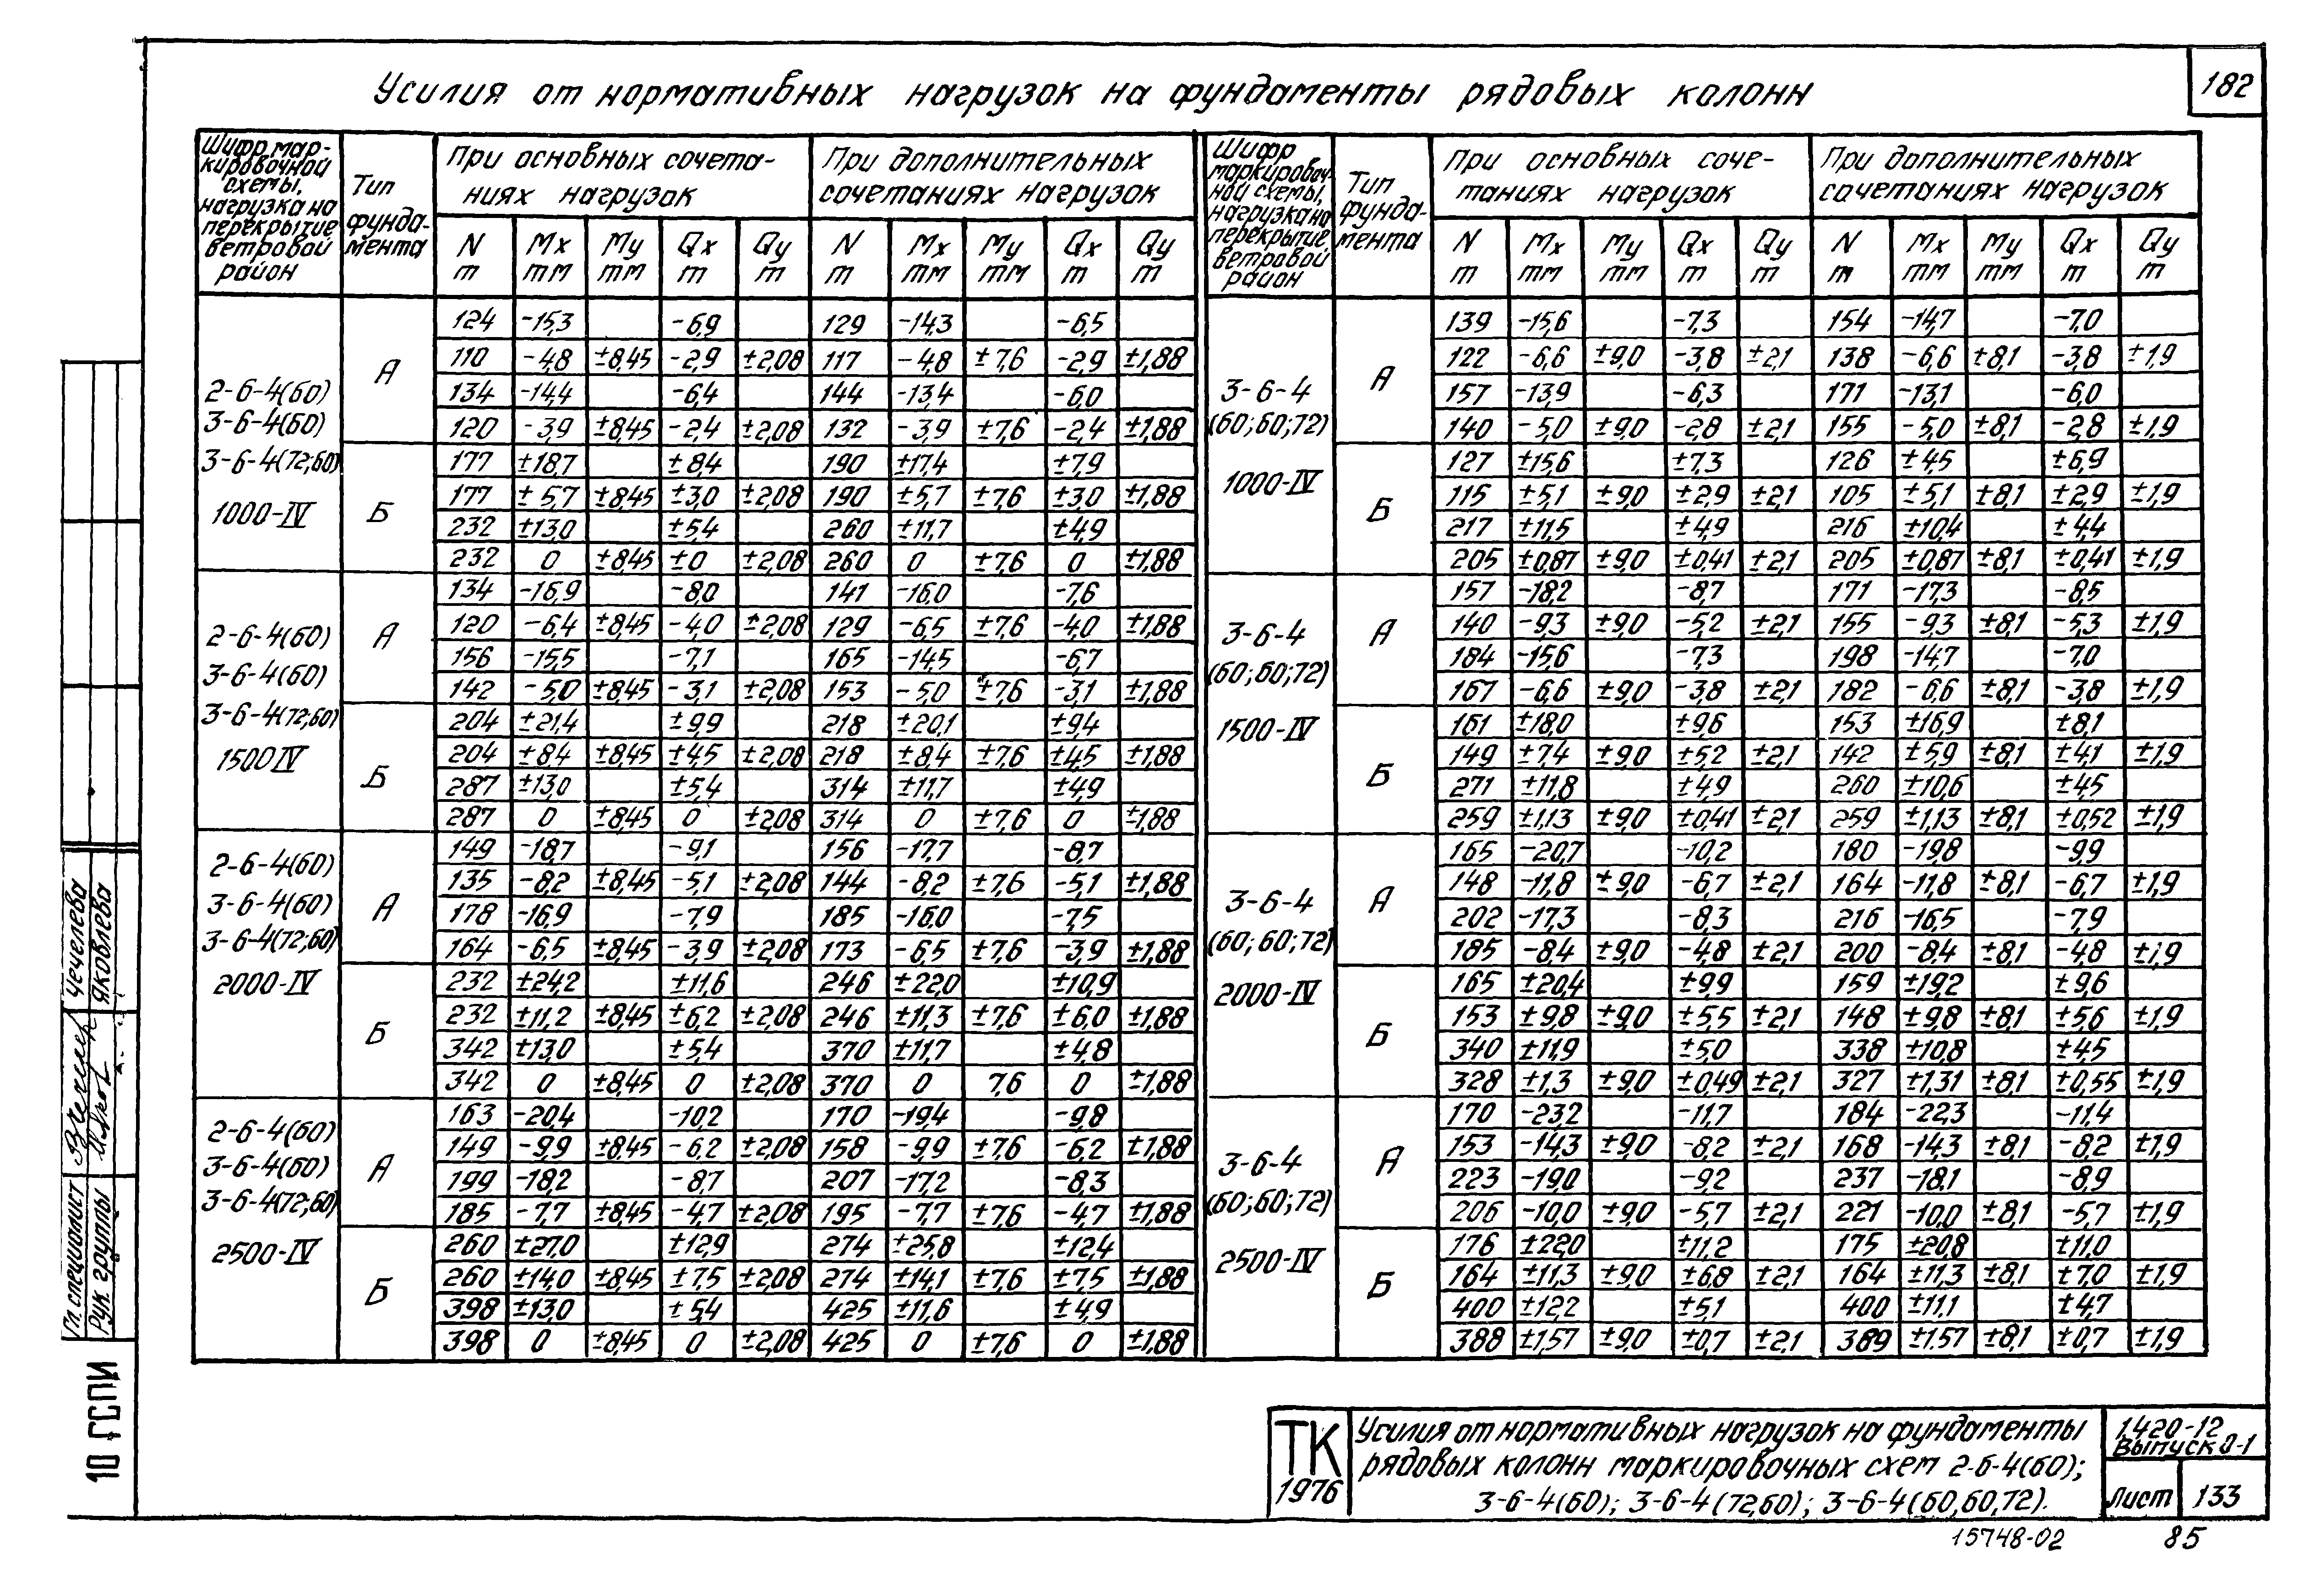 182
Усилия от нормативных нагрузок на фундаменты рядовых колонн
Шифр мар-
кировочной
схемы,
нагрузка на
перекрытие
ветровой
район
Тип
фунда-
мента
При основных сочета-
ниях нагрузок
При дополнительных
сочетаниях нагрузок
N т Mx тм My тм Qx т Qy т N т Mx тм My тм Qx т Qy т
2-6-4(60)
3-6-4(60)
3-6-4(72;60)
1000-IV
А
124 -15,3 -6,9 129 -14,3 -6,5
110 -4,8 ±8,45 -2,9 ±2,08 117 -4,8 ±7,6 -2,9 ±1,88
134 -14,4 -6,4 144 -13,4 -6,0
120 -3,9 ±8,45 -2,4 ±2,08 132 -3,9 ±7,6 -2,4 ±1,88
Б
177 ±18,7 ±8,4 190 ±17,4 ±7,9
177 ±5,7 ±8,45 ±3,0 ±2,08 190 ±5,7 ±7,6 ±3,0 ±1,88
232 ±13,0 ±5,4 260 ±11,7 ±4,9
232 0 ±8,45 ±0 ±2,08 260 0 ±7,6 0 ±1,88
2-6-4(60)
3-6-4(60)
3-6-4(72;60)
1500IV
А
134 -16,9 -8,0 141 -16,0 -7,6
120 -6,4 ±8,45 -4,0 ±2,08 129 -6,5 ±7,6 -4,0 ±1,88
156 -15,5 -7,1 165 -14,5 -6,7
142 -5,0 ±8,45 -3,1 ±2,08 153 -5,0 ±7,6 -3,1 ±1,88
Б
204 ±21,4 ±9,9 218 ±20,1 ±9,4
204 ±8,4 ±8,45 ±4,5 ±2,08 218 ±8,4 ±7,6 ±4,5 ±1,88
287 ±13,0 ±5,4 314 ±11,7 ±4,9
287 0 ±8,45 0 ±2,08 314 0 ±7,6 0 ±1,88
2-6-4(60)
3-6-4(60)
3-6-4(72;60)
2000-IV
А
149 -18,7 -9,1 156 -17,7 -8,7
135 -8,2 ±8,45 -5,1 ±2,08 144 -8,2 ±7,6 -5,1 ±1,88
178 -16,9 -7,9 185 -16,0 -7,5
164 -6,5 ±8,45 -3,9 ±2,08 173 -6,5 ±7,6 -3,9 ±1,88
Б
232 ±24,2 ±11,6 246 ±22,0 ±10,9
232 ±11,2 ±8,45 ±6,2 ±2,08 246 ±11,3 ±7,6 ±6,0 ±1,88
342 ±13,0 ±5,4 370 ±11,7 ±4,8
342 0 ±8,45 0 ±2,08 370 0 7,6 0 ±1,88
2-6-4(60)
3-6-4(60)
3-6-4(72;60)
2500-IV
А
163 -20,4 -10,2 170 -19,4 -9,8
149 -9,9 ±8,45 -6,2 ±2,08 158 -9,9 ±7,6 -6,2 ±1,88
199 -18,2 -8,7 207 -17,2 -8,3
185 -7,7 ±8,45 -4,7 ±2,08 195 -7,7 ±7,6 -4,7 ±1,88
Б
260 ±27,0 ±12,9 274 ±25,8 ±12,4
260 ±14,0 ±8,45 ±7,5 ±2,08 274 ±14,1 ±7,6 ±7,5 ±1,88
398 ±13,0 ±5,4 425 ±11,6 ±4,9
398 0 ±8,45 0 ±2,08 425 0 ±7,6 0 ±1,88
Шифр
маркировоч-
ной схемы,
нагрузка на
перекрытие,
ветровой
район
Тип
фунда-
мента
При основных соче-
таниях нагрузок
При дополнительных
сочетаниях нагрузок
N т Mx тм My тм Qx т Qy т N т Mx тм My тм Qx т Qy т
3-6-4
(60;60;72)
1000-IV
А
139 -15,6 -7,3 154 -14,7 -7,0
122 -6,6 ±9,0 -3,8 ±2,1 138 -6,6 ±8,1 -3,8 ±1,9
157 -13,9 -6,3 171 -13,1 -6,0
140 -5,0 ±9,0 -2,8 ±2,1 155 -5,0 ±8,1 -2,8 ±1,9
Б
127 ±15,6 ±7,3 126 ±4,5 ±6,9
115 ±5,1 ±9,0 ±2,9 ±2,1 105 ±5,1 ±8,1 ±2,9 ±1,9
217 ±11,5 ±4,9 216 ±10,4 ±4,4
205 ±0,87 ±9,0 ±0,41 ±2,1 205 ±0,87 ±8,1 ±0,41 ±1,9
3-6-4
(60;60;72)
1500-IV
А
157 -18,2 -8,7 171 -17,3 -8,5
140 -9,3 ±9,0 -5,2 ±2,1 155 -9,3 ±8,1 -5,3 ±1,9
184 -15,6 -7,3 198 -14,7 -7,0
167 -6,6 ±9,0 -3,8 ±2,1 182 -6,6 ±8,1 -3,8 ±1,9
Б
161 ±18,0 ±9,6 153 ±16,9 ±8,1
149 ±7,4 ±9,0 ±5,2 ±2,1 142 ±5,9 ±8,1 ±4,1 ±1,9
271 ±11,8 ±4,9 260 ±10,6 ±4,5
259 ±1,13 ±9,0 ±0,41 ±2,1 259 ±1,13 ±8,1 ±0,52 ±1,9
3-6-4
(60;60;72)
2000-IV
А
165 -20,7 -10,2 180 -19,8 -9,9
148 -11,8 ±9,0 -6,7 ±2,1 164 -11,8 ±8,1 -6,7 ±1,9
202 -17,3 -8,3 216 -16,5 -7,9
185 -8,4 ±9,0 -4,8 ±2,1 200 -8,4 ±8,1 -4,8 ±1,9
Б
165 ±20,4 ±9,9 159 ±19,2 ±9,6
153 ±9,8 ±9,0 ±5,5 ±2,1 148 ±9,8 ±8,1 ±5,6 ±1,9
340 ±11,9 ±5,0 338 ±10,8 ±4,5
328 ±1,3 ±9,0 ±0,49 ±2,1 327 ±1,31 ±8,1 ±0,55 ±1,9
3-6-4
(60;60;72)
2500-IV
А
170 -23,2 -11,7 184 -22,3 -11,4
153 -14,3 ±9,0 -8,2 ±2,1 168 -14,3 ±8,1 -8,2 ±1,9
223 -19,0 -9,2 237 -18,1 -8,9
206 -10,0 ±9,0 -5,7 ±2,1 221 -10,0 ±8,1 -5,7 ±1,9
Б
176 ±22,0 ±11,2 175 ±20,8 ±11,0
164 ±11,3 ±9,0 ±6,8 ±2,1 164 ±11,3 ±8,1 ±7,0 ±1,9
400 ±12,2 ±5,1 400 ±11,1 ±4,7
388 ±1,57 ±9,0 ±0,7 ±2,1 389 ±1,57 ±8,1 ±0,7 ±1,9
Гл. специалист Чечелева
Рук группы Яковлева
10 ГСПИ
ТК
1976
Усилия от нормативных нагрузок на фундаменты
рядовых колонн маркировочных схем 2-6-4(60);
3-6-4(60); 3-6-4(72,60); 3-6-4(60,60,72).
1.420-12
Выпуск 0-1
Лист 133
15748-02 85